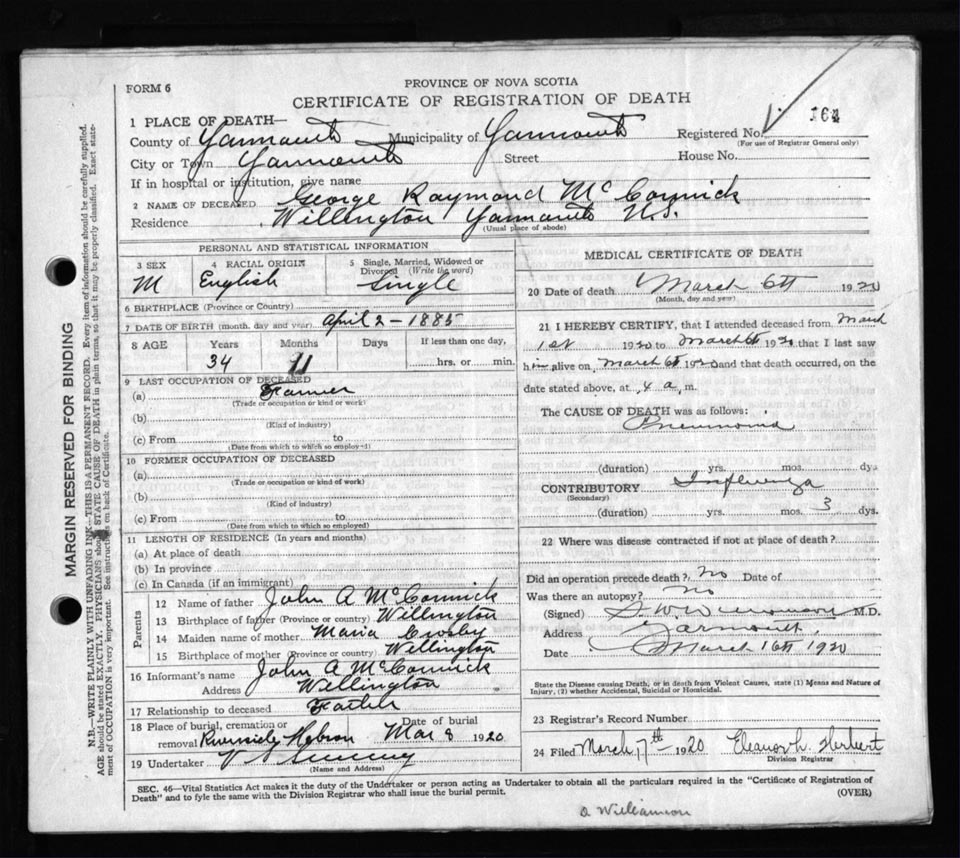 FORM 6
PROVINCE OF NOVA SCOTIA
CERTIFICATE OF REGISTRATION OF DEATH
164
1 PLACE OF DEATH—
County of Yarmouth Municipality of Yarmouth Registered No.
(For use of Registrar General only)
City or Town Yarmouth Street House No.
If in hospital or institution, give name
2 NAME OF DECEASED George Raymond McCormick
Residence Willington Yarmouth N.S.
(Usual place of abode)
PERSONAL AND STATISTICAL INFORMATION
3 SEX 4 RACIAL ORIGIN 5 Single, Married, Widowed or Divorced (Write the word)
M English Single
6 BIRTHPLACE (Province or Country)
7 DATE OF BIRTH (month, day and year) April 2 - 1885
8 AGE Years Months Days If less than one day,
34 11 hrs. or min.
9 LAST OCCUPATION OF DECEASED
(a) Farmer
(Trade or occupation or kind or work)
(b)
(Kind of industry)
(c) From to
(Date from which to which so employed)
10 FORMER OCCUPATION OF DECEASED
(a)
(Trade or occupation or kind of work)
(b)
(Kind of industry)
(c) From to
(Date from which to which so employed)
11 LENGTH OF RESIDENCE (In years and months)
(a) At place of death
(b) In province
(c) In Canada (if an immigrant)
Parents
12 Name of father John A McCormick
13 Birthplace of father (Province or country) Willington
14 Maiden name of mother Maria Crosby
15 Birthplace of mother (Province or country) Willington
16 Informant's name John A McCormick
Address Willington
17 Relationship to deceased Father
18 Place of burial, cremation or removal Riverside Hebron Date of burial Mar 8 1920
19 Undertaker
(Name and Address)
MEDICAL CERTIFICATE OF DEATH
20 Date of death March 6th 1920
(Month, day and year)
21 I HEREBY CERTIFY, that I attended deceased from March
1st 1920 to March 6th 1920 that I last saw
him alive on March 6th 1920 and that death occurred, on
date stated above, at 4 a. m.
The CAUSE OF DEATH was as follows:
Pneumonia
(duration) yrs. mos. dys
CONTRIBUTORY Influenza
(Secondary)
(duration) yrs. mos. 3 dys.
22 Where was disease contracted if not at place of death?
Did an operation precede death? no Date of
Was there an autopsy? no
(Signed) M.D.
Address Yarmouth
Date March 16th 1920
State the Disease causing Death, or in death from Violent Causes, state (1) Means and Nature of
Injury, (2) whether Accidental, Suicidal or Homicidal.
23 Registrar's Record Number
24 Filed March 7th 1920 Eleanor L. Herbert
Division Registrar
SEC. 46—Vital Statistics Act makes it the duty of the Undertaker or person acting as Undertaker to obtain all the particulars required in the "Certificate of Registration of
Death" and to fyle the same with the Division Registrar who shall issue the burial permit. (OVER)
a Williamson
MARGIN RESERVED FOR BINDING
N.B.—WRITE PLAINLY WITH UNFADING INK—THIS IS A PERMANENT RECORD. Every item of information should be carefully supplied.
AGE should be stated EXACTLY. PHYSICIANS should STATE CAUSE OF DEATH in plain terms, so that it may be properly classified. Exact state-
ment of OCCUPATION is very important. See instructions on back of Certificate.